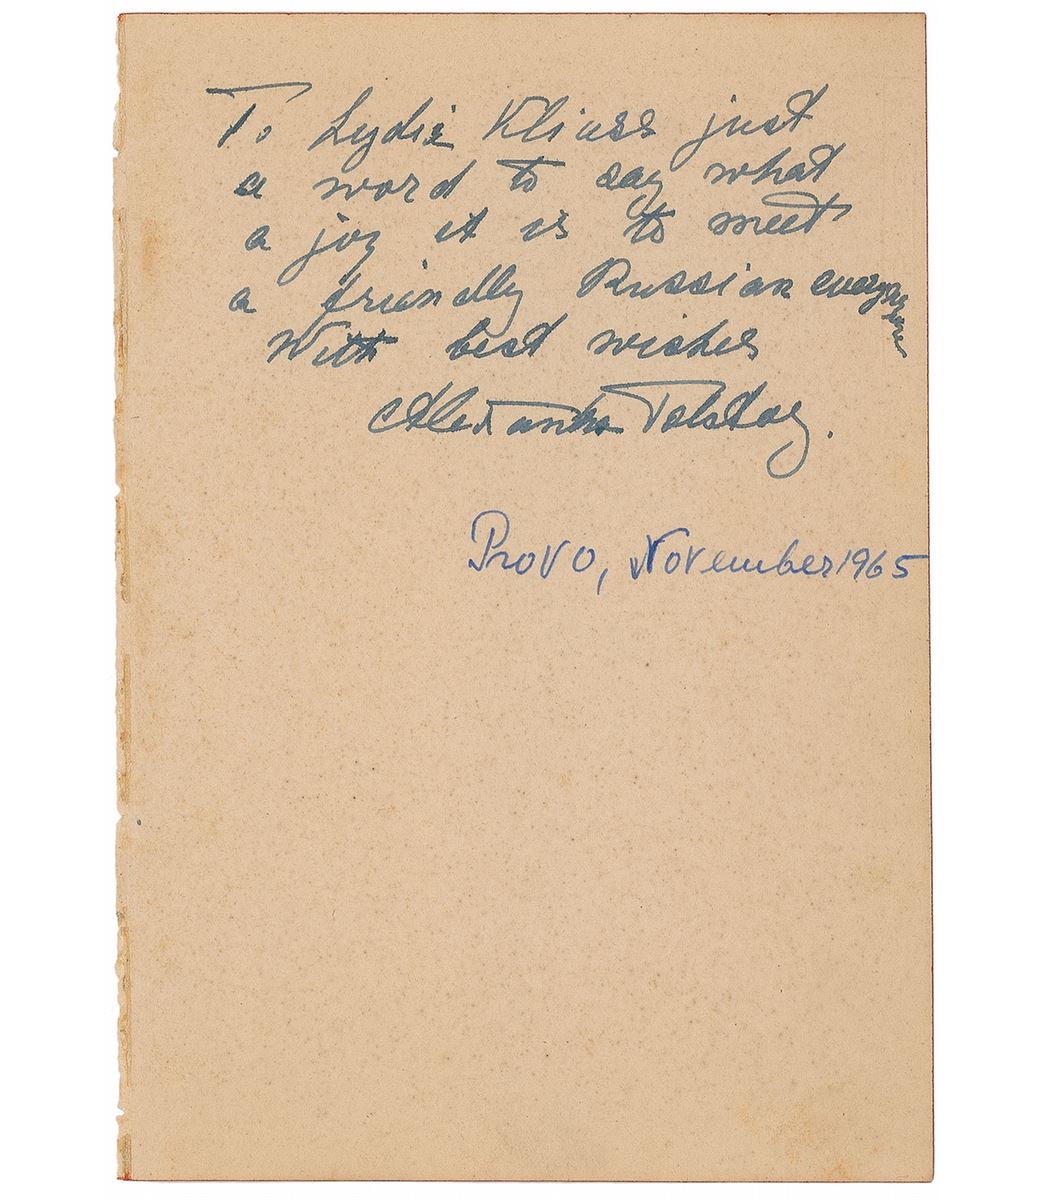 To Lydia Kliass just
a word to say what
a joy it is to meet
a friendly Russian everywhere
With best wishes
Alexandra Tolstoy.
Provo, November 1965